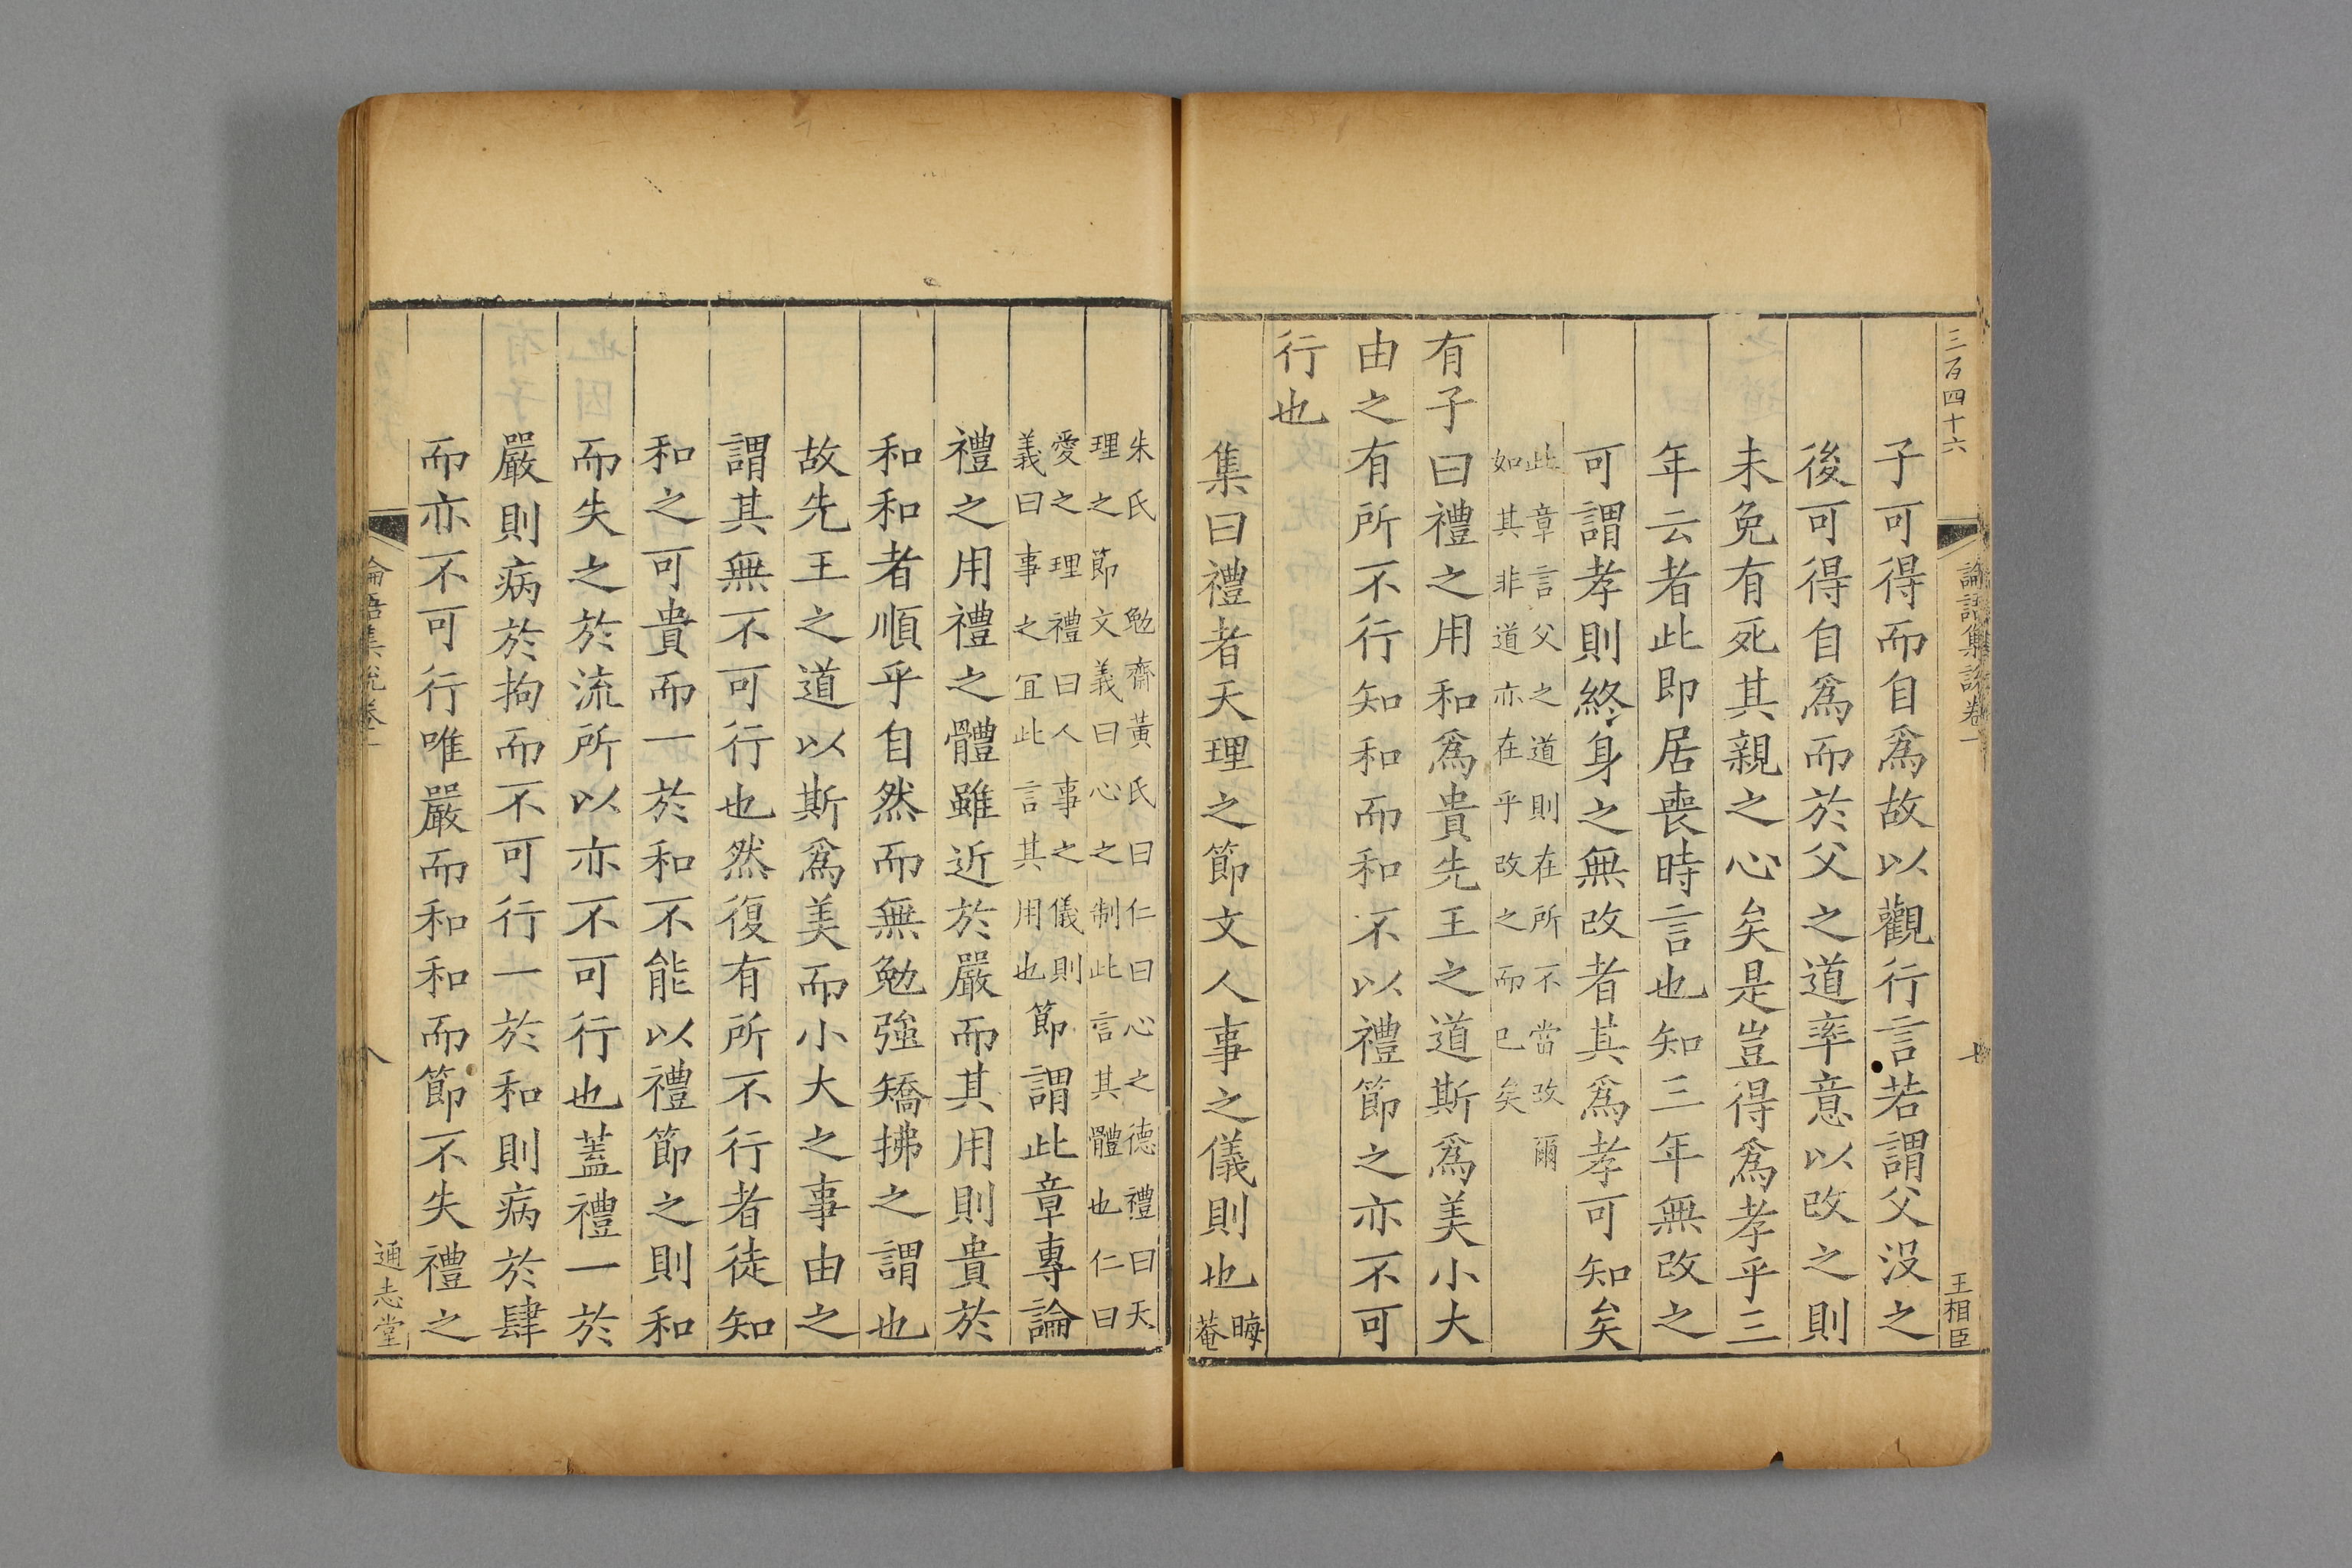 三百四十六
論語集說卷一
七
王相臣
子可得而自爲故以觀行言若謂父没之
後可得自爲而於父之道率意以改之則
未免有死其親之心矣是豈得爲孝乎三
年云者此即居喪時言也知三年無改之
可謂孝則終身之無改者其爲孝可知矣
此章言父之道則在所不當改爾
如其非道亦在乎改之而已矣
有子曰禮之用和爲貴先王之道斯爲美小大
由之有所不行知和而和不以禮節之亦不可
行也
集曰禮者天理之節文人事之儀則也
晦
菴
朱氏
勉齋黃氏曰仁曰心之德禮曰天
理之節文義曰心之制此言其體也仁曰
愛之理禮曰人事之儀則
義曰事之宜此言其用也
節謂此章專論
禮之用禮之體雖近於嚴而其用則貴於
和和者順乎自然而無勉強矯拂之謂也
故先王之道以斯爲美而小大之事由之
謂其無不可行也然復有所不行者徒知
和之可貴而一於和不能以禮節之則和
而失之於流所以亦不可行也蓋禮一於
嚴則病於拘而不可行一於和則病於肆
而亦不可行唯嚴而和和而節不失禮之
論語集說卷一
八
通志堂